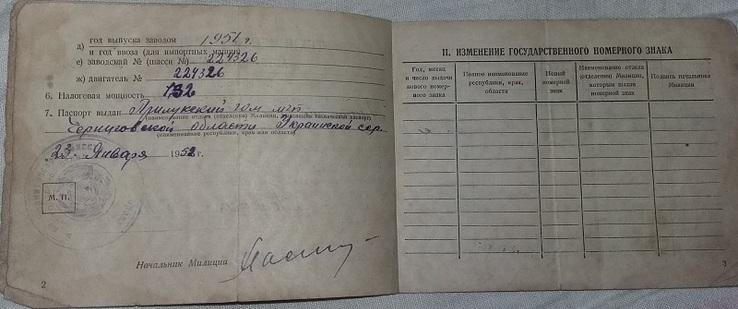 д) год выпуска заводом 1951 г.
и год ввоза (для импортных машин)
е) заводской № (шасси №) 224326
ж) двигатель № 224326
6. Налоговая мощность 132
7. Паспорт выдан Прилукский гом мгб
(наименование отдела (отделения) Милиции, выдавшего технический паспорт)
Черниговской области Украинской сср.
(наименование республики, края или области)
23 Января 1952 г.
М. П.
Начальник Милиции
2
II. ИЗМЕНЕНИЕ ГОСУДАРСТВЕННОГО НОМЕРНОГО ЗНАКА
Год, месяц и число выдачи нового номерного знака
Полное наименование республики, края, области
Новый номерной знак
Наименование отдела (отделения) Милиции, которым выдан номерной знак
Подпись начальника Милиции
3